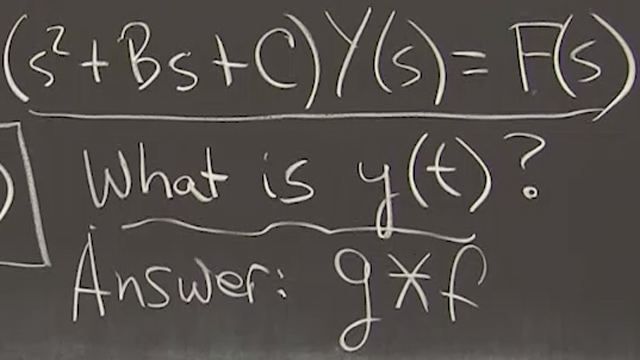 (s² + Bs + C) Y(s) = F(s)
What is y(t)?
Answer: g * f